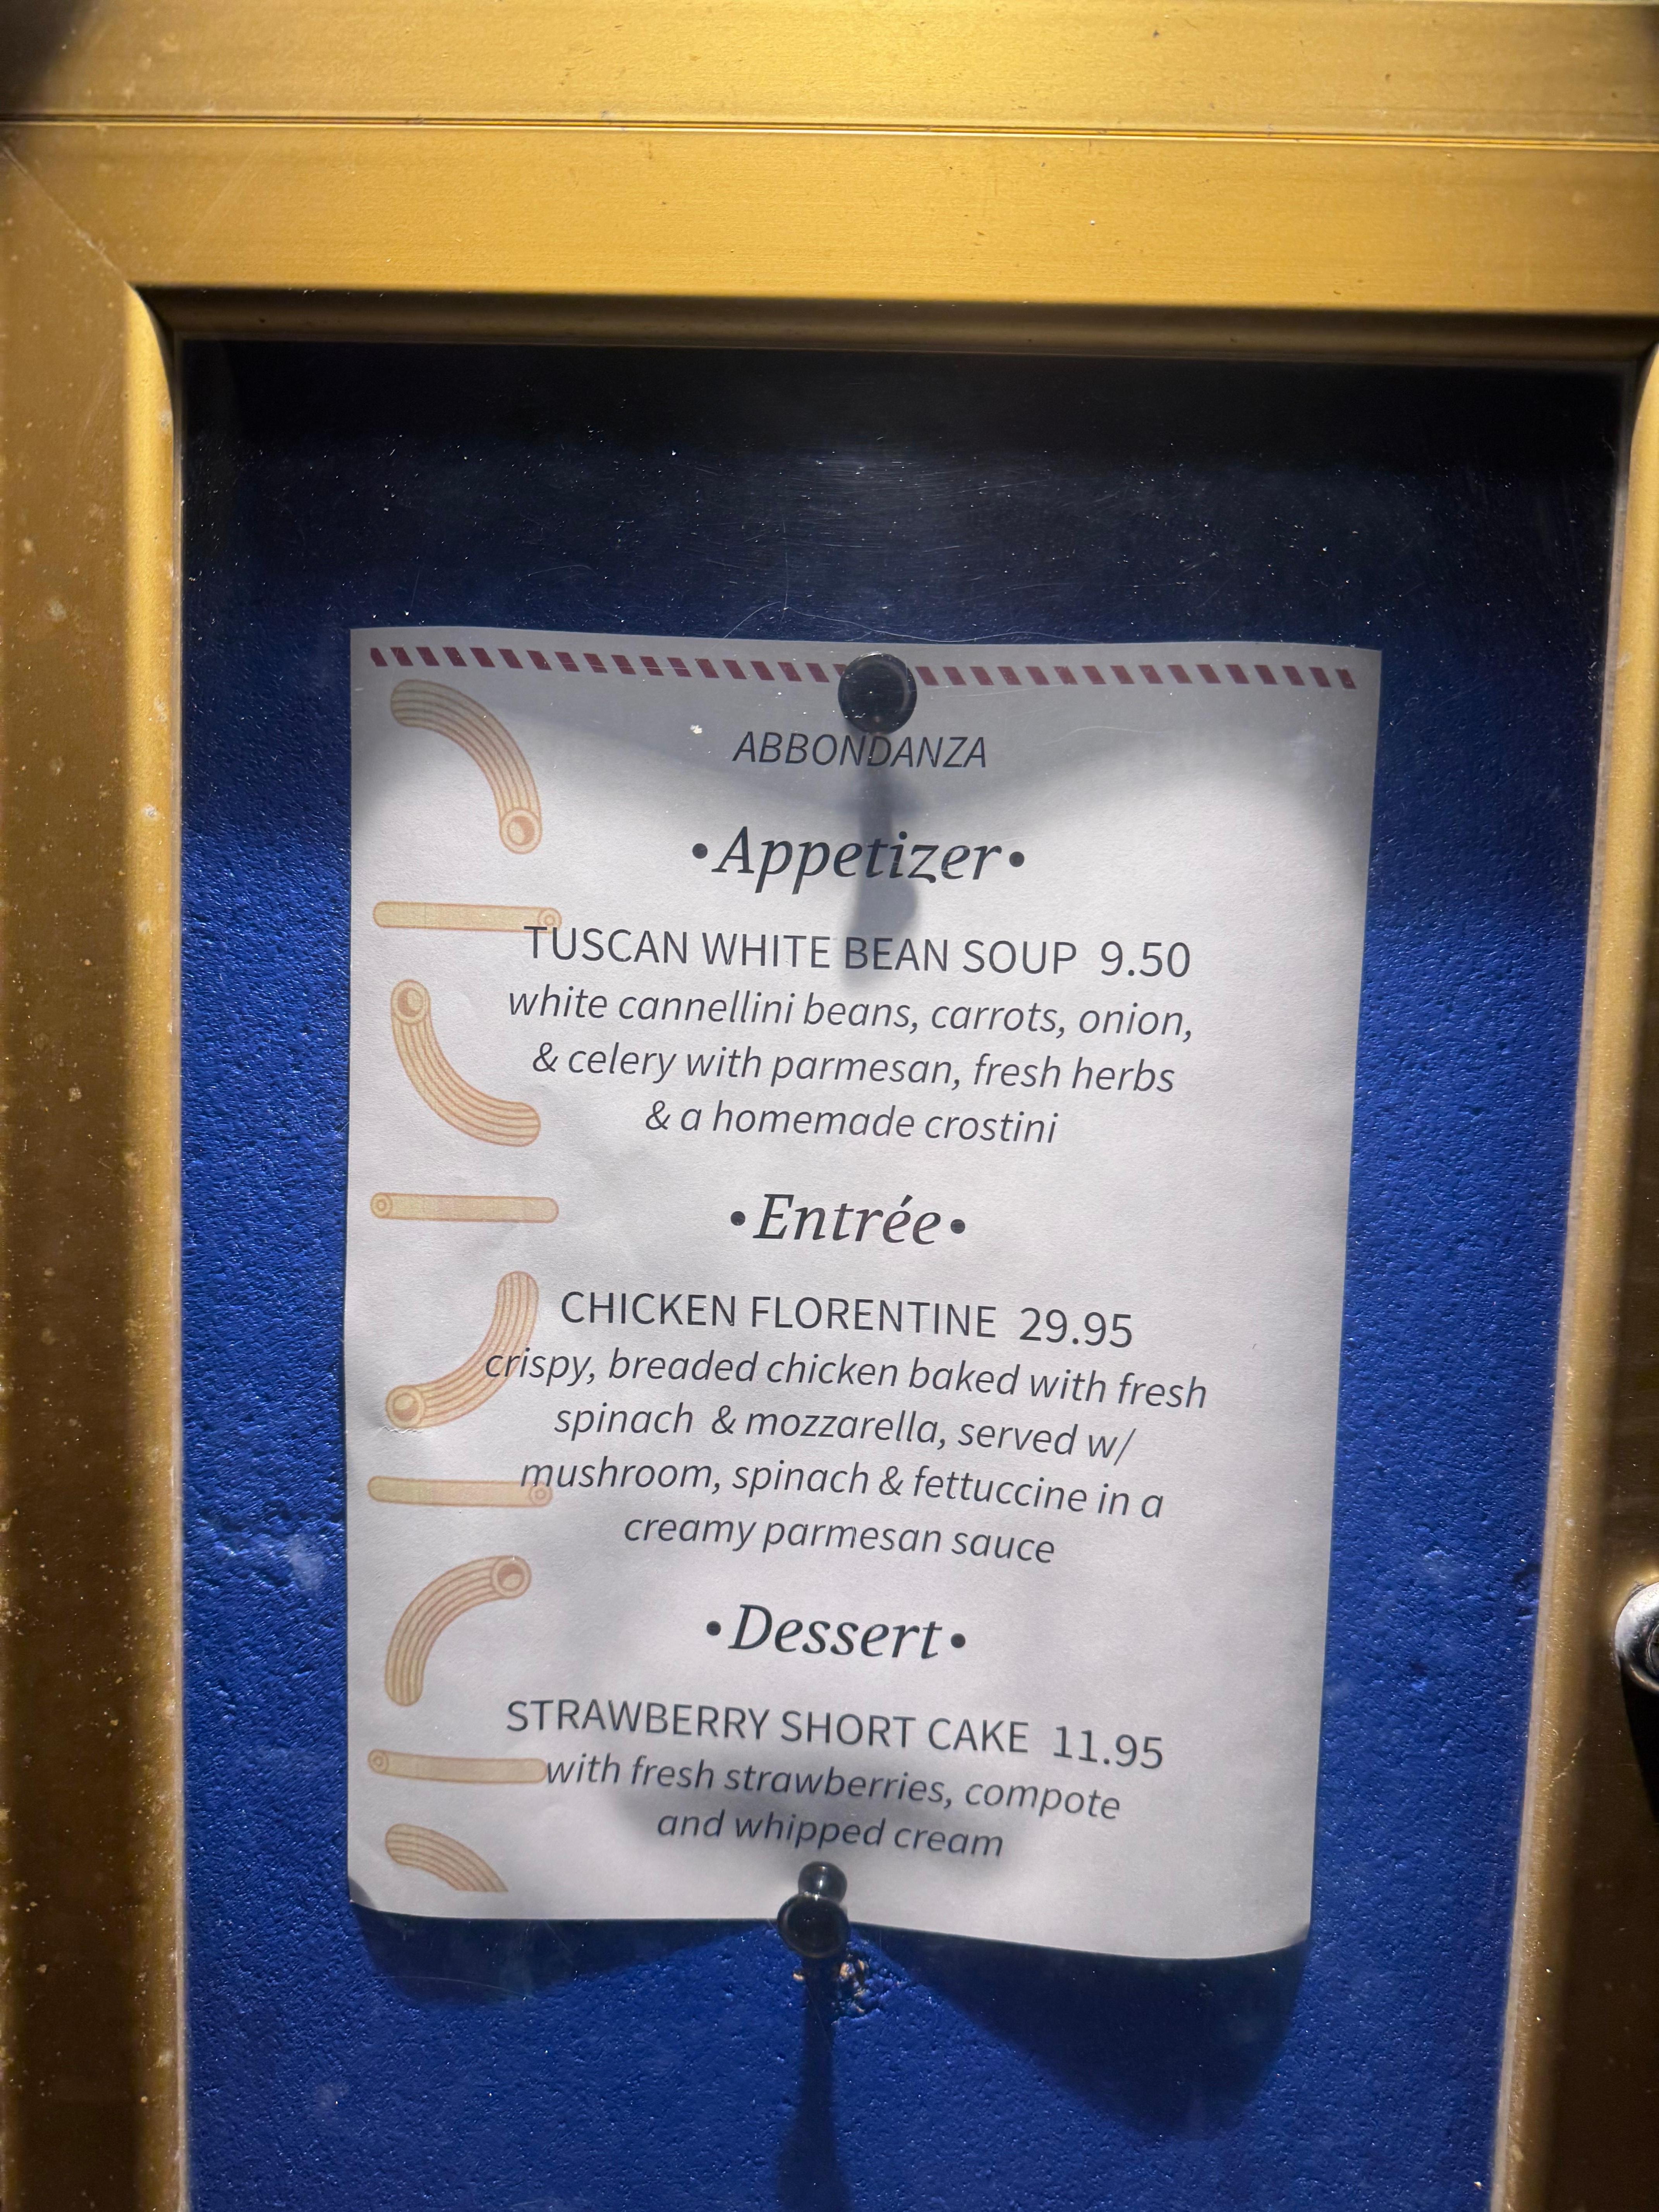 ABBONDANZA
•Appetizer•
TUSCAN WHITE BEAN SOUP 9.50
white cannellini beans, carrots, onion,
& celery with parmesan, fresh herbs
& a homemade crostini
•Entrée•
CHICKEN FLORENTINE 29.95
crispy, breaded chicken baked with fresh
spinach & mozzarella, served w/
mushroom, spinach & fettuccine in a
creamy parmesan sauce
•Dessert•
STRAWBERRY SHORT CAKE 11.95
with fresh strawberries, compote
and whipped cream